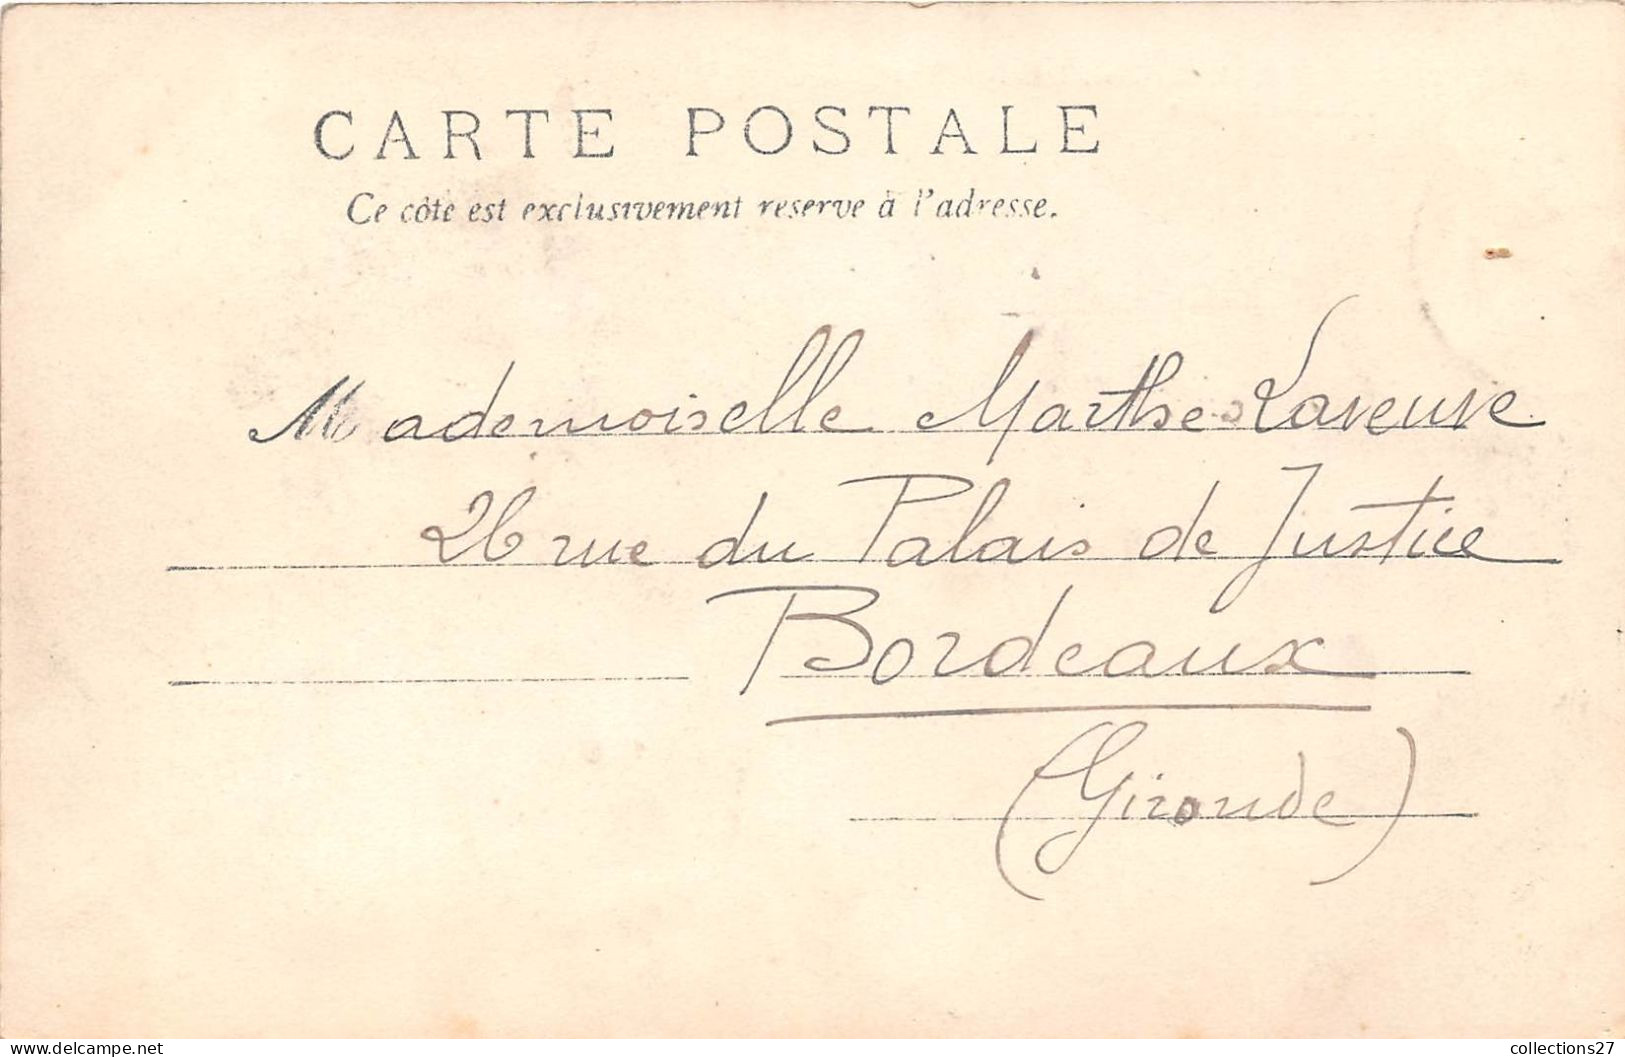 CARTE POSTALE
Ce côté est exclusivement reserve à l'adresse.
Mademoiselle Marthe Laveuve
26 rue du Palais de Justice
Bordeaux
(Gironde)
collections27